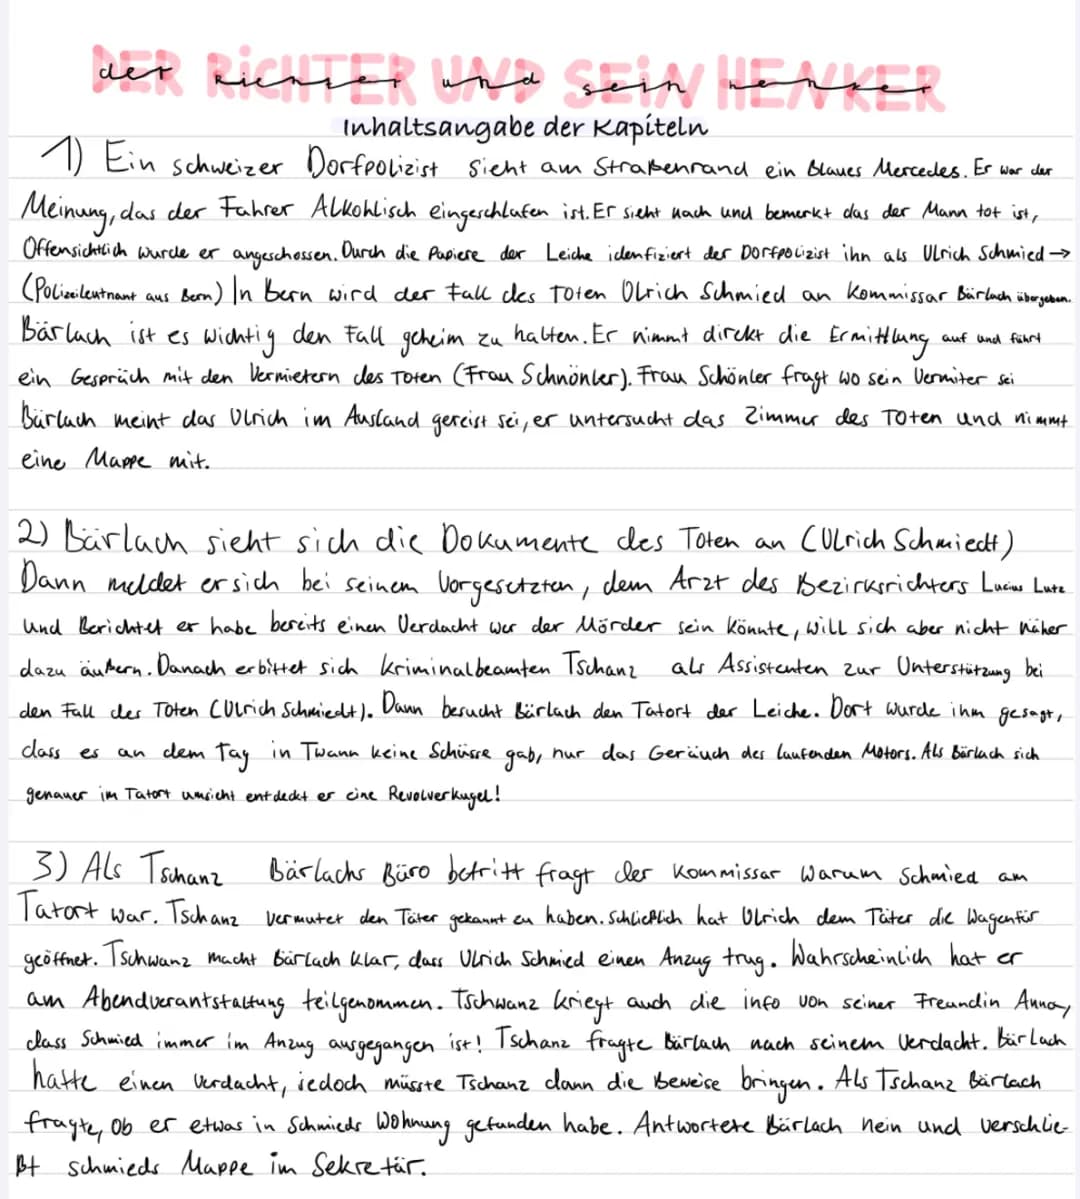 DER RICHTER UND SEIN HENKER
der Richter und sein henker
Inhaltsangabe der Kapiteln
1) Ein schweizer Dorfpolizist sieht am Straßenrand ein blaues Mercedes. Er war der
Meinung, das der Fahrer Alkohlisch eingeschlafen ist. Er sieht nach und bemerkt das der Mann tot ist,
Offensichtlich wurde er angeschossen. Durch die Papiere der Leiche idenfiziert der Dorfpolizist ihn als Ulrich Schmied →
(Polizeileutnant aus Bern) In Bern wird der Fall des Toten Ulrich Schmied an Kommissar Bärlach übergeben.
Bärlach ist es wichtig den Fall geheim zu halten. Er nimmt direkt die Ermittlung auf und führt
ein Gespräch mit den Vermietern des Toten (Frau Schnönler). Frau Schönler fragt wo sein Vermiter sei
Bärlach meint das Ulrich im Ausland gereist sei, er untersucht das Zimmer des Toten und nimmt
eine Mappe mit.
2) Bärlach sieht sich die Dokumente des Toten an (Ulrich Schmiedt)
Dann meldet er sich bei seinem Vorgesetzten, dem Arzt des Bezirksrichters Lucius Lutz
und Berichtet er habe bereits einen Verdacht wer der Mörder sein könnte, will sich aber nicht näher
dazu äußern. Danach erbittet sich kriminalbeamten Tschanz als Assistenten zur Unterstützung bei
den Fall des Toten (Ulrich Schmiedt). Dann besucht Bärlach den Tatort der Leiche. Dort wurde ihm gesagt,
dass es an dem Tag in Twann keine Schüsse gab, nur das Geräuch des laufenden Motors. Als Bärlach sich
genauer im Tatort umsicht entdeckt er eine Revolverkugel!
3) Als Tschanz Bärlachs Büro betritt fragt der Kommissar warum Schmied am
Tatort war. Tschanz vermutet den Täter gekannt zu haben. Schließlich hat Ulrich dem Täter die Wagentür
geöffnet. Tschwanz macht Bärlach klar, dass Ulrich Schmied einen Anzug trug. Wahrscheinlich hat er
am Abendverantstaltung teilgenommen. Tschwanz kriegt auch die info von seiner Freundin Anna,
dass Schmied immer im Anzug ausgegangen ist! Tschanz fragte Bärlach nach seinem Verdacht. Bärlach
hatte einen Verdacht, jedoch müsste Tschanz dann die Beweise bringen. Als Tschanz Bärlach
fragte, ob er etwas in Schmieds Wohnung gefunden habe. Antwortete Bärlach nein und verschlie-
ßt schmieds Mappe im Sekretär.